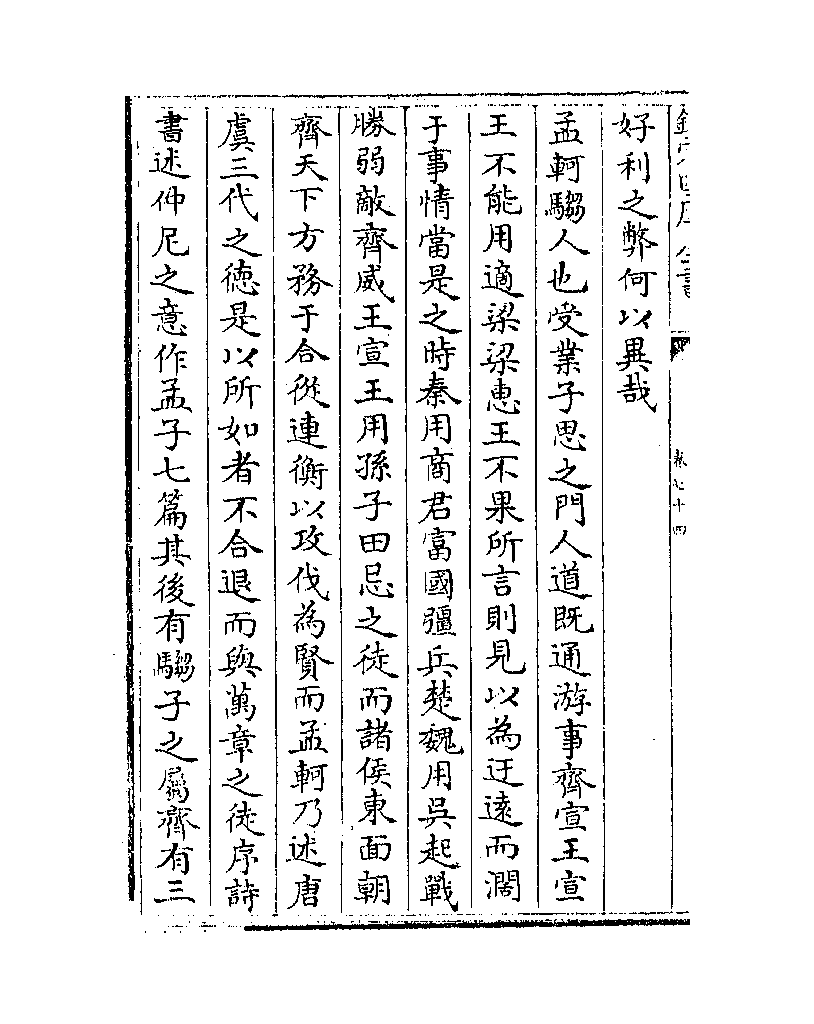 欽定四庫全書
卷七十四
好利之弊何以異哉
孟軻騶人也受業子思之門人道既通游事齊宣王宣
王不能用適梁梁惠王不果所言則見以為迂遠而濶
于事情當是之時秦用商君富國彊兵楚魏用吳起戰
勝弱敵齊威王宣王用孫子田忌之徒而諸侯東面朝
齊天下方務于合從連衡以攻伐為賢而孟軻乃述唐
虞三代之德是以所如者不合退而與萬章之徒序詩
書述仲尼之意作孟子七篇其後有騶子之屬齊有三